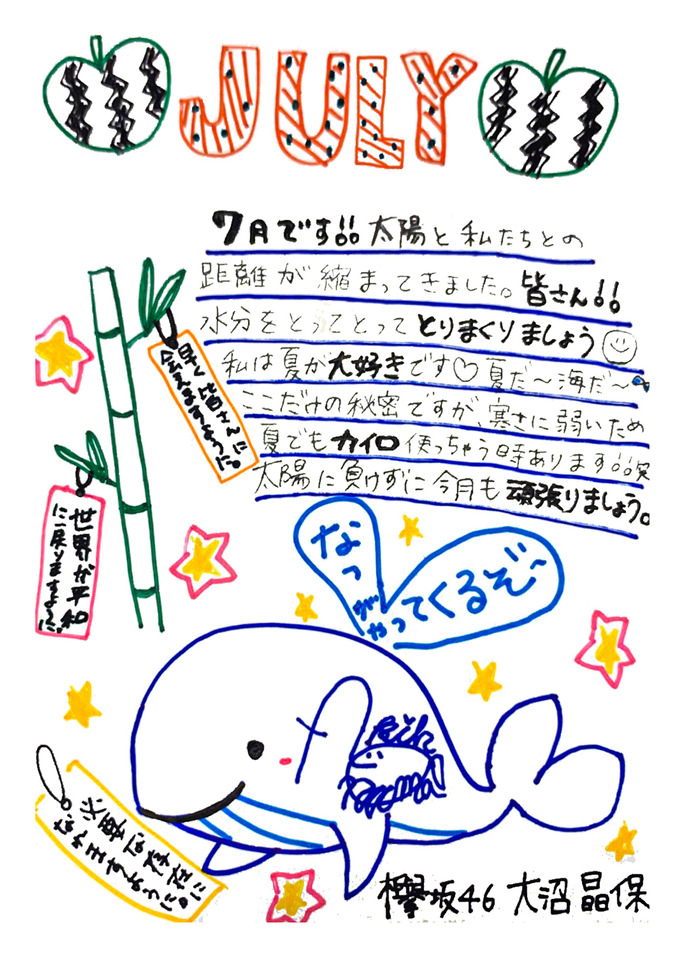 JULY
7月です!! 太陽と私たちとの
距離が縮まってきました。皆さん!!
水分をとってとってとりまくりましょう
私は夏が大好きです♡ 夏だ〜海だ〜
ここだけの秘密ですが、寒さに弱いため
夏でもカイロ使っちゃう時あります!!笑
太陽に負けずに今月も頑張りましょう。
早く皆さんに
会えますように。
世界が平和
に戻りますように。
なつがやってくるぞ〜
必要な存在に
なれますように。
欅坂46 大沼晶保